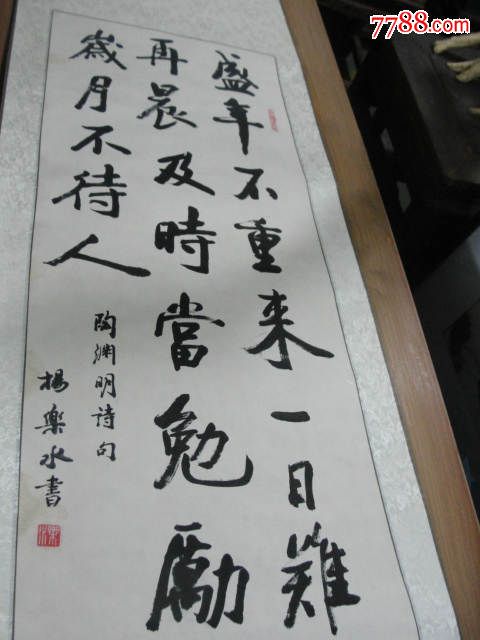 7788.com
盛年不重来一日難
再晨及時當勉勵
歲月不待人
陶渊明詩句
楊樂水書